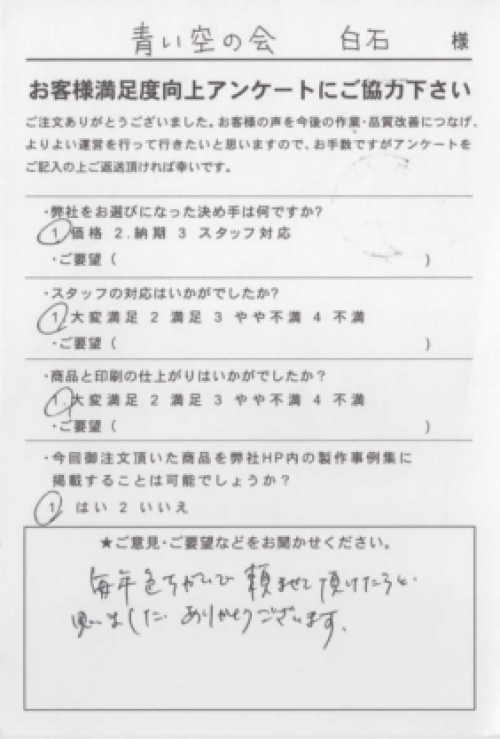 青い空の会 白石 様
お客様満足度向上アンケートにご協力下さい
ご注文ありがとうございました。お客様の声を今後の作業・品質改善につなげ、
よりよい運営を行って行きたいと思いますので、お手数ですがアンケートを
ご記入の上ご返送頂ければ幸いです。
・弊社をお選びになった決め手は何ですか?
1 価格 2.納期 3 スタッフ対応
・ご要望( )
・スタッフの対応はいかがでしたか?
1 大変満足 2 満足 3 やや不満 4 不満
・ご要望( )
・商品と印刷の仕上がりはいかがでしたか?
1 大変満足 2 満足 3 やや不満 4 不満
・ご要望( )
・今回御注文頂いた商品を弊社HP内の製作事例集に
掲載することは可能でしょうか?
1 はい 2 いいえ
★ご意見・ご要望などをお聞かせください。
毎年色ちがいで頼ませて頂けたらと
思いました。ありがとうございます。